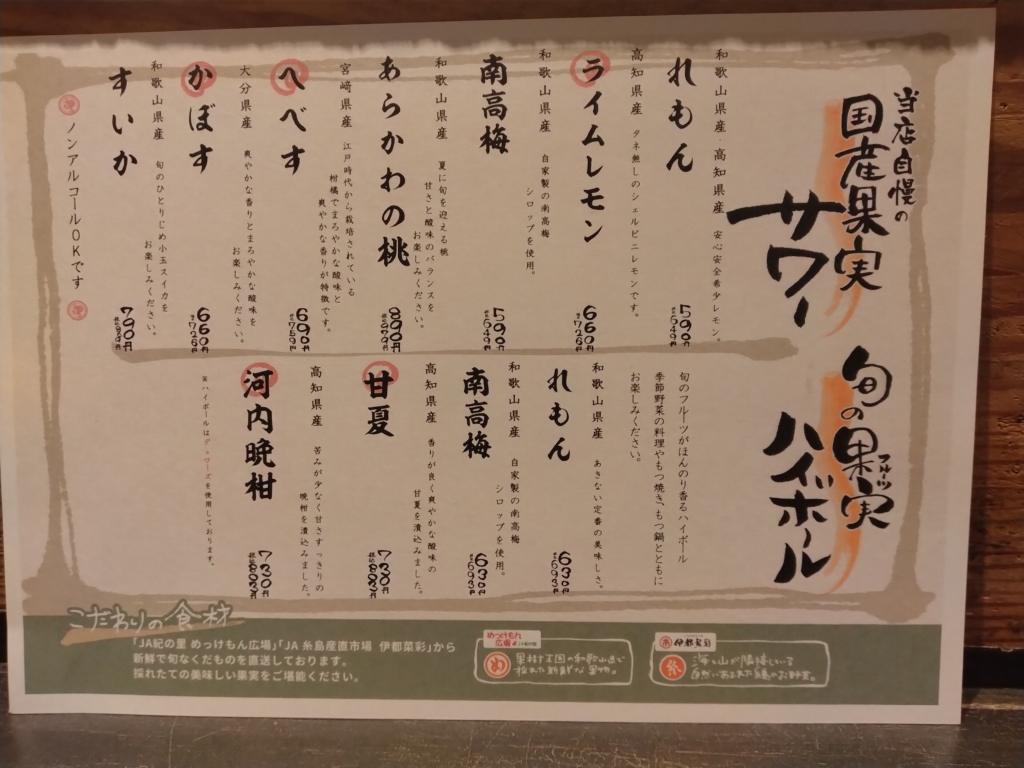 当店自慢の
国産果実
サワー
和歌山県産 高知県産 安心安全希少レモン。
れもん
590円
税込649円
高知県産 タネ無しのシェルビニレモンです。
ライムレモン
660円
税込726円
和歌山県産 自家製の南高梅
シロップを使用。
南高梅
590円
税込649円
和歌山県産 夏に旬を迎える桃
甘さと酸味のバランスを
お楽しみください。
あらかわの桃
890円
税込979円
宮崎県産 江戸時代から栽培されている
柑橘でまろやかな酸味と
爽やかな香りが特徴です。
へべす
690円
税込759円
大分県産 爽やかな香りとまろやかな酸味を
お楽しみください。
かぼす
660円
税込726円
和歌山県産 旬のひとりじめ小玉スイカを
お楽しみください。
すいか
ノンアルコールOKです
旬の果実
フルーツ
ハイボール
旬のフルーツがほんのり香るハイボール
季節野菜の料理やもつ焼き・もつ鍋とともに
お楽しみください。
和歌山県産 あきない定番の美味しさ。
れもん
630円
税込693円
和歌山県産 自家製の南高梅
シロップを使用。
南高梅
630円
税込693円
高知県産 香りが良く爽やかな酸味の
甘夏を漬込みました。
甘夏
730円
税込803円
高知県産 苦みが少なく甘さすっきりの
晩柑を漬込みました。
河内晩柑
730円
税込803円
※ハイボールはデュワーズを使用しております。
こだわりの食材
「JA紀の里 めっけもん広場」「JA 糸島産直市場 伊都菜彩」から
新鮮で旬なくだものを直送しております。
採れたての美味しい果実をご堪能ください。
めっけもん
広場
め
果樹王国の和歌山県で
採れた新鮮な果物。
伊都菜彩
糸
海と山が隣接している